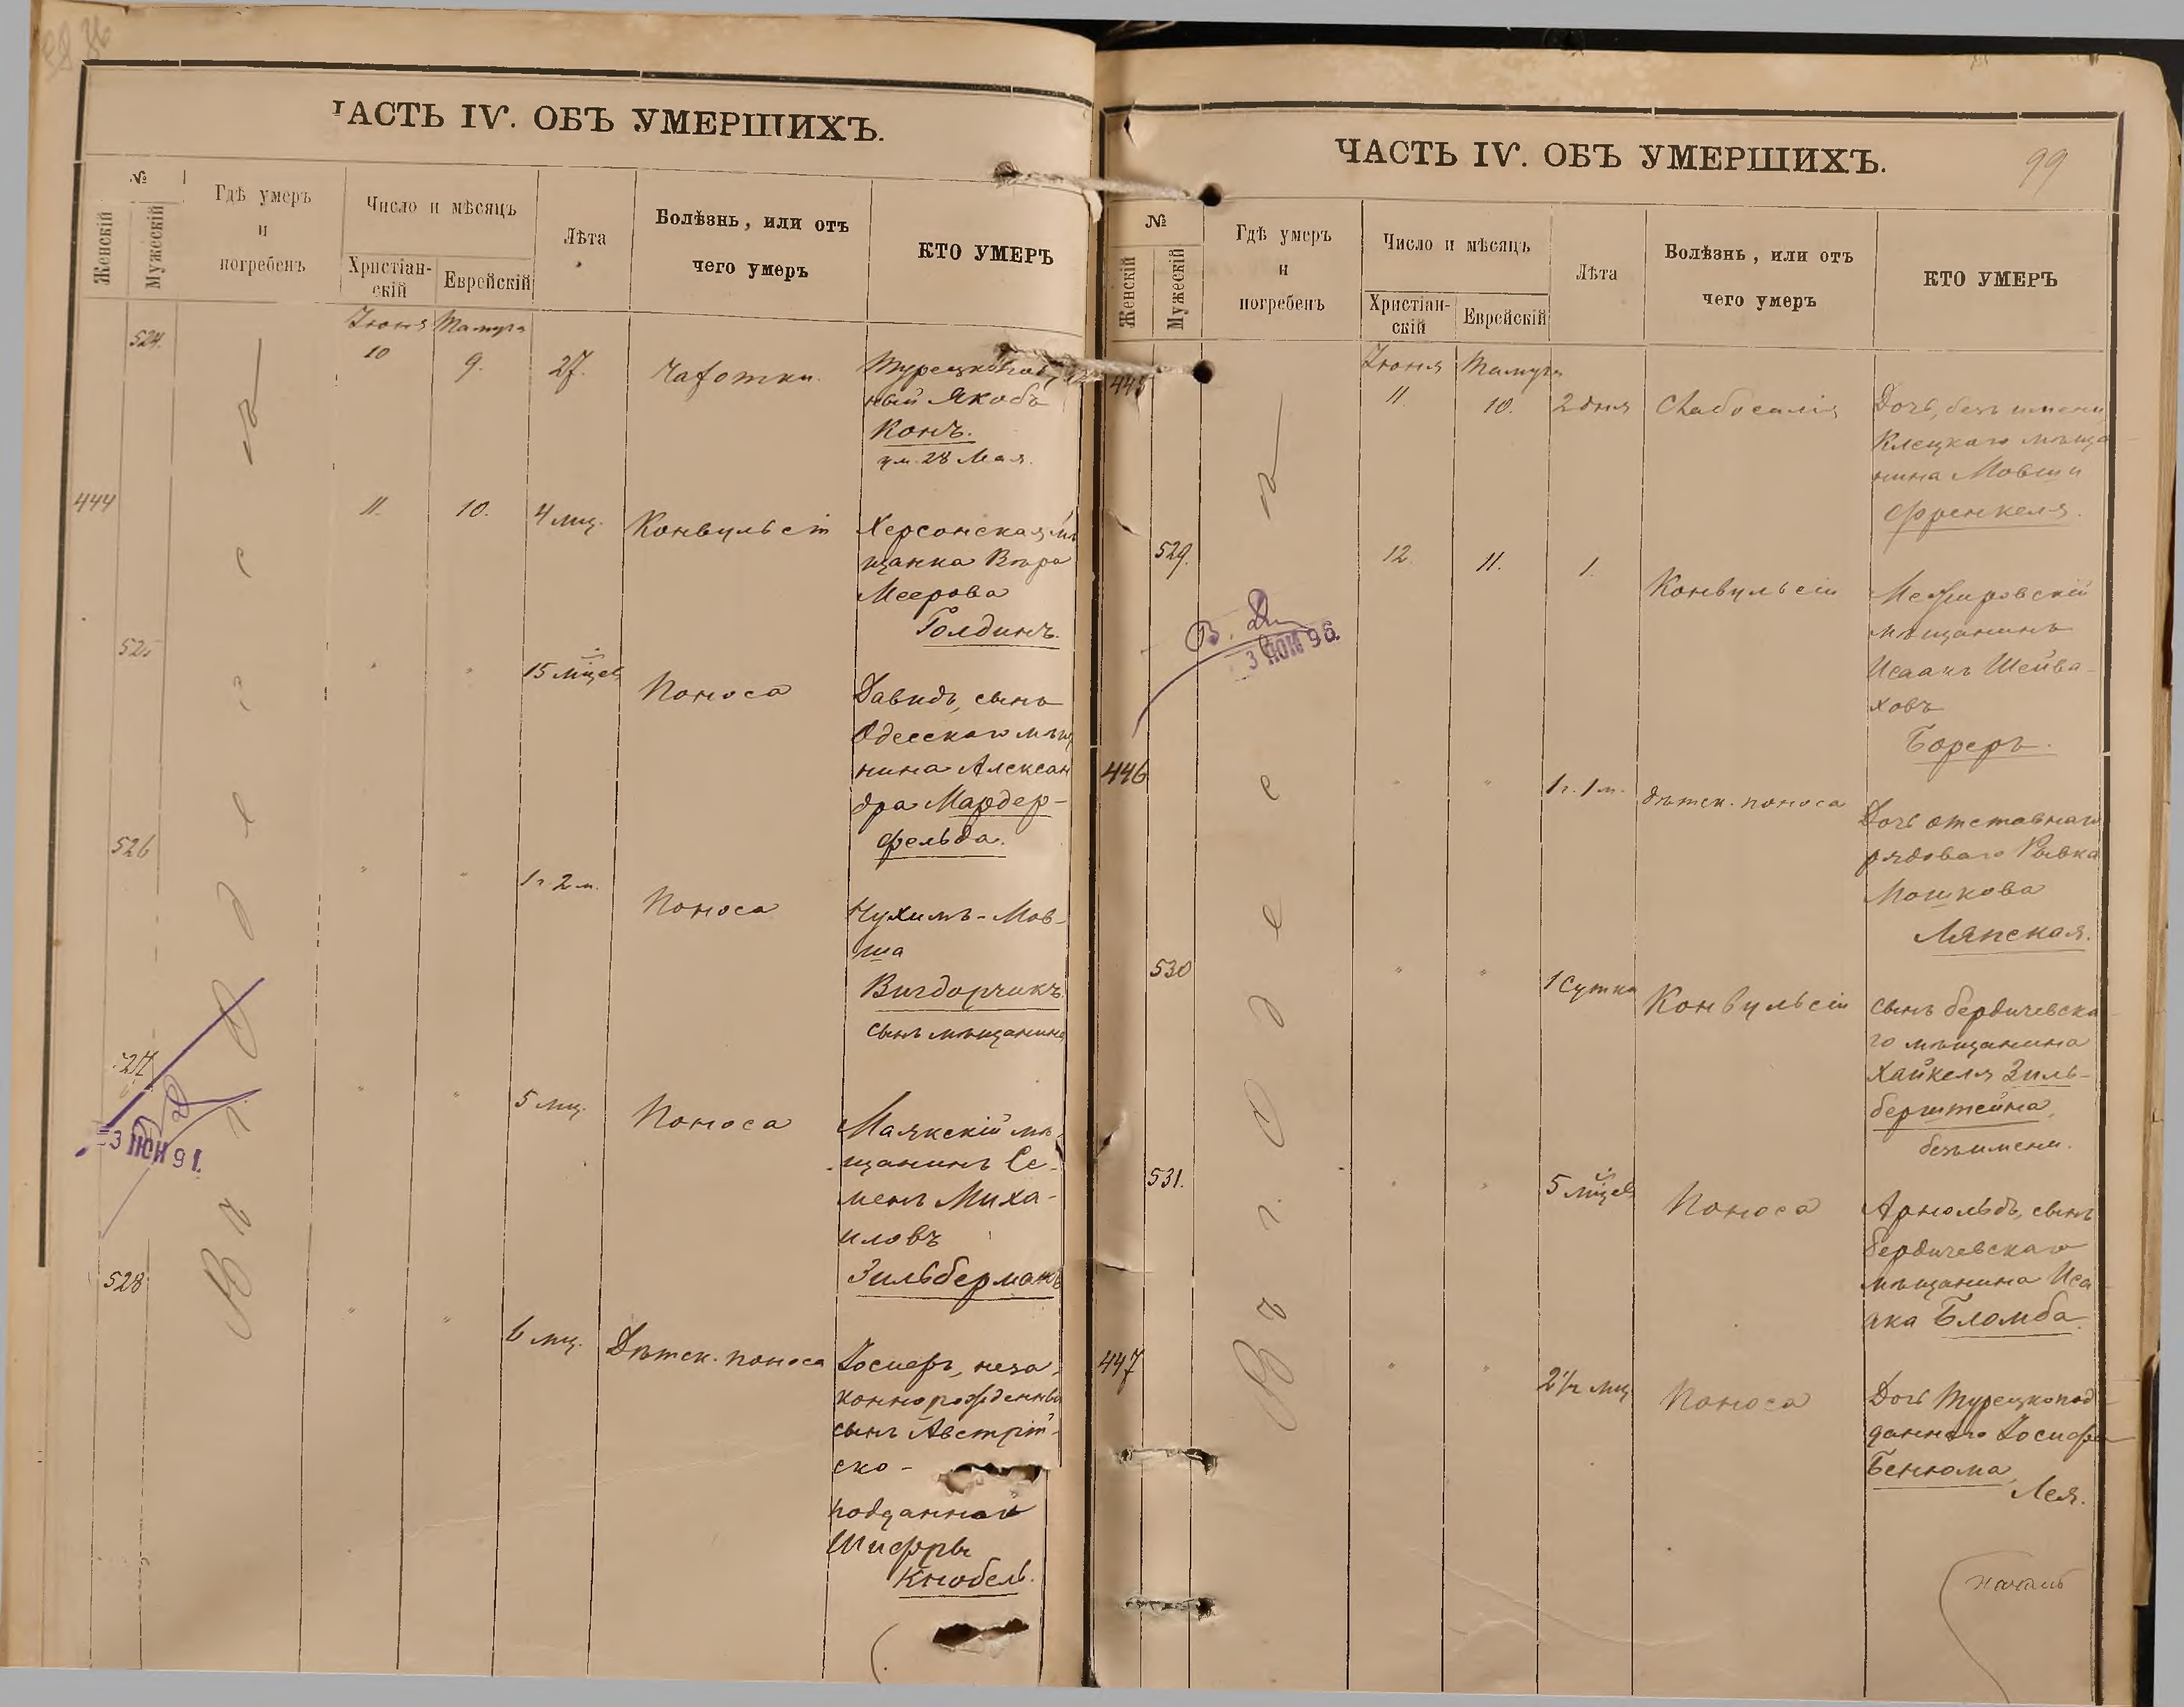 ЧАСТЬ IV. ОБЪ УМЕРШИХЪ.
№
Женскій
Мужескій
Гдѣ умеръ
и
погребенъ
Число и мѣсяцъ
Христіан-
скій
Еврейскій
Лѣта
Болѣзнь, или отъ
чего умеръ
КТО УМЕРЪ
Въ г. Одессѣ
524.
Іюня
10
Тамуза
9.
27.
Чахотки.
Турецкопод
ный Якобъ
Конъ.
ум. 28 Мая.
444
11.
10.
4 мц.
Конвульсій
Херсонская мѣ
щанка Вѣра
Меерова
Голдинъ.
525
"
"
15 мѣсяцев
Поноса
Давидъ, сынъ
Одесскаго мѣщ
нина Алексан
дра Мардер-
фельда.
526
"
"
1 г. 2 м.
Поноса
Нухимъ-Мов-
ша
Вигдорчикъ
сынъ мѣщанина
527
"
"
5 мц.
Поноса
Маякскій мѣ-
щанинъ Се-
менъ Миха-
иловъ
Зильберманъ
3 ІЮН 91.
528
"
"
6 мц.
Дѣтск. поноса
Іосифъ, неза-
коннорожденный
сынъ Австрій-
ско-
подданной
Шифры
Кнобель.
ЧАСТЬ IV. ОБЪ УМЕРШИХЪ.
99
№
Женскій
Мужескій
Гдѣ умеръ
и
погребенъ
Число и мѣсяцъ
Христіан-
скій
Еврейскій
Лѣта
Болѣзнь, или отъ
чего умеръ
КТО УМЕРЪ
Въ г. Одессѣ
445
Іюня
11.
Тамуза
10.
2 дня
Слабосилія
Дочь, безъ имени,
Клецкаго мѣща
нина Мовши
Френкеля.
529.
12.
11.
1.
Конвульсіи
Межировскій
мѣщанинъ
Исаакъ Шейва-
ховъ
Бореръ.
3 ІЮН 96.
446
"
"
1 г. 1 м.
дѣтск. поноса
Дочь отставнаго
рядоваго Рывка
Мошкова
Ляпская.
530
"
"
1 Сутки
Конвульсіи
сынъ бердичевска
го мѣщанина
Хайкеля Зиль-
берштейна,
безъ имени.
531.
"
"
5 мѣсяцев
Поноса
Арнольдъ, сынъ
бердичевскаго
мѣщанина Иса
ака Бломба.
447
"
"
2 1/2 мц.
Поноса
Дочь Турецкопод
даннаго Іосифа
Бенюма,
Лея.